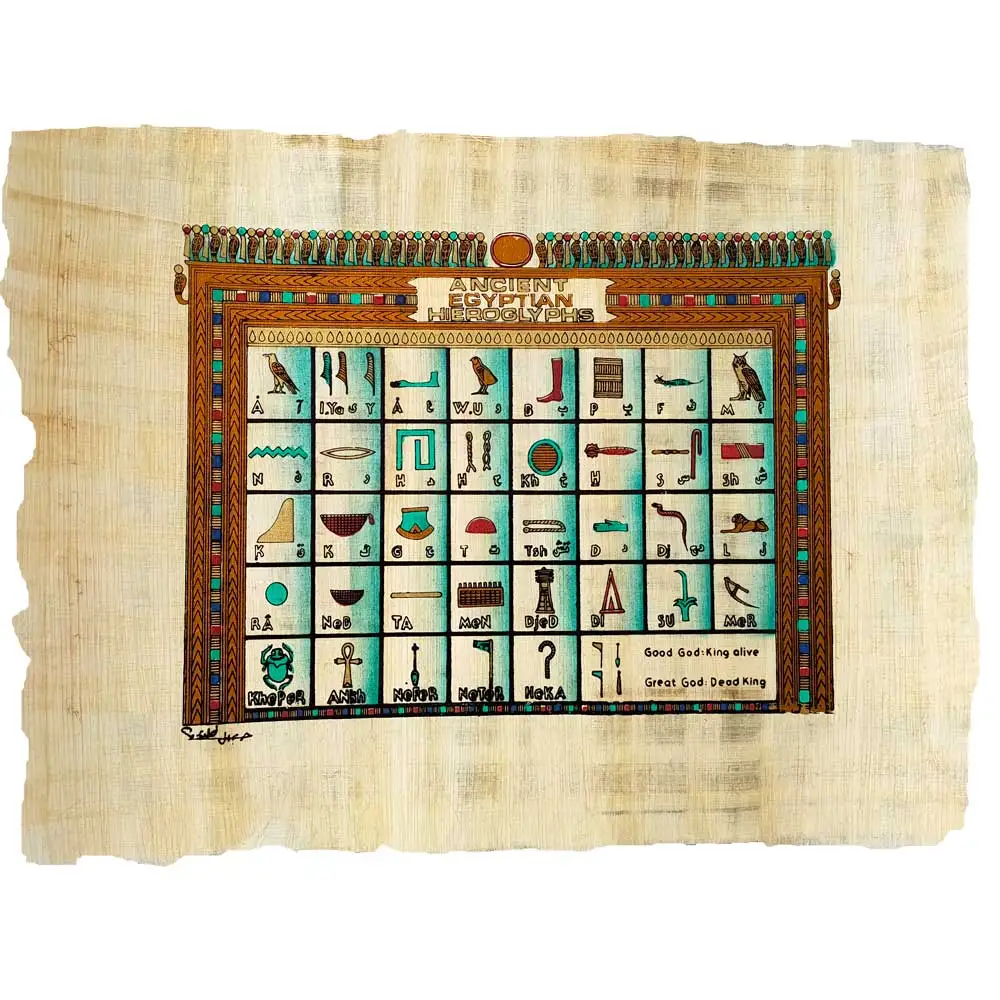 ANCIENT
EGYPTIAN
HIEROGLYPHS
Å أ I.Ya ي Y Å ع W.U و B ب P پ F ف M م
N ن R ر H ه H ح Kh خ H S س Sh ش
K ق K ك G ج T ت Tsh تش D د Dj دج L ل
RÅ NeB TA MeN DjeD Di SU MeR
KhePeR ANkh NeFeR NeTeR HeKA
Good God:King alive
Great God:Dead King